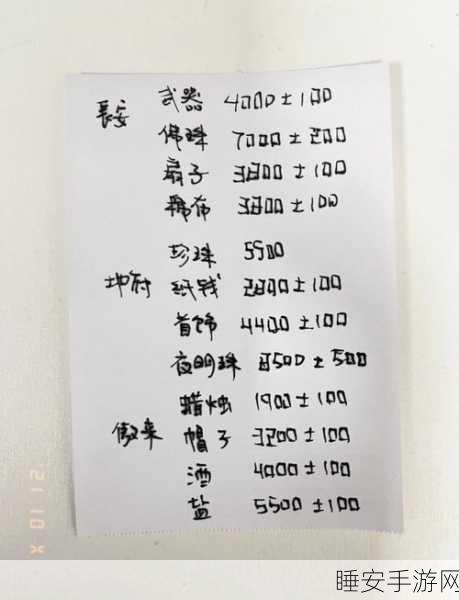 長安 武器 4000±100
佛珠 7000±200
扇子 3800±100
棉布 3800±100
珍珠 5900
地府 纸钱 2800±100
首饰 4400±100
夜明珠 8500±500
蜡烛 1900±100
傲来 帽子 3200±100
酒 4000±100
盐 5500±100
睡安手游网